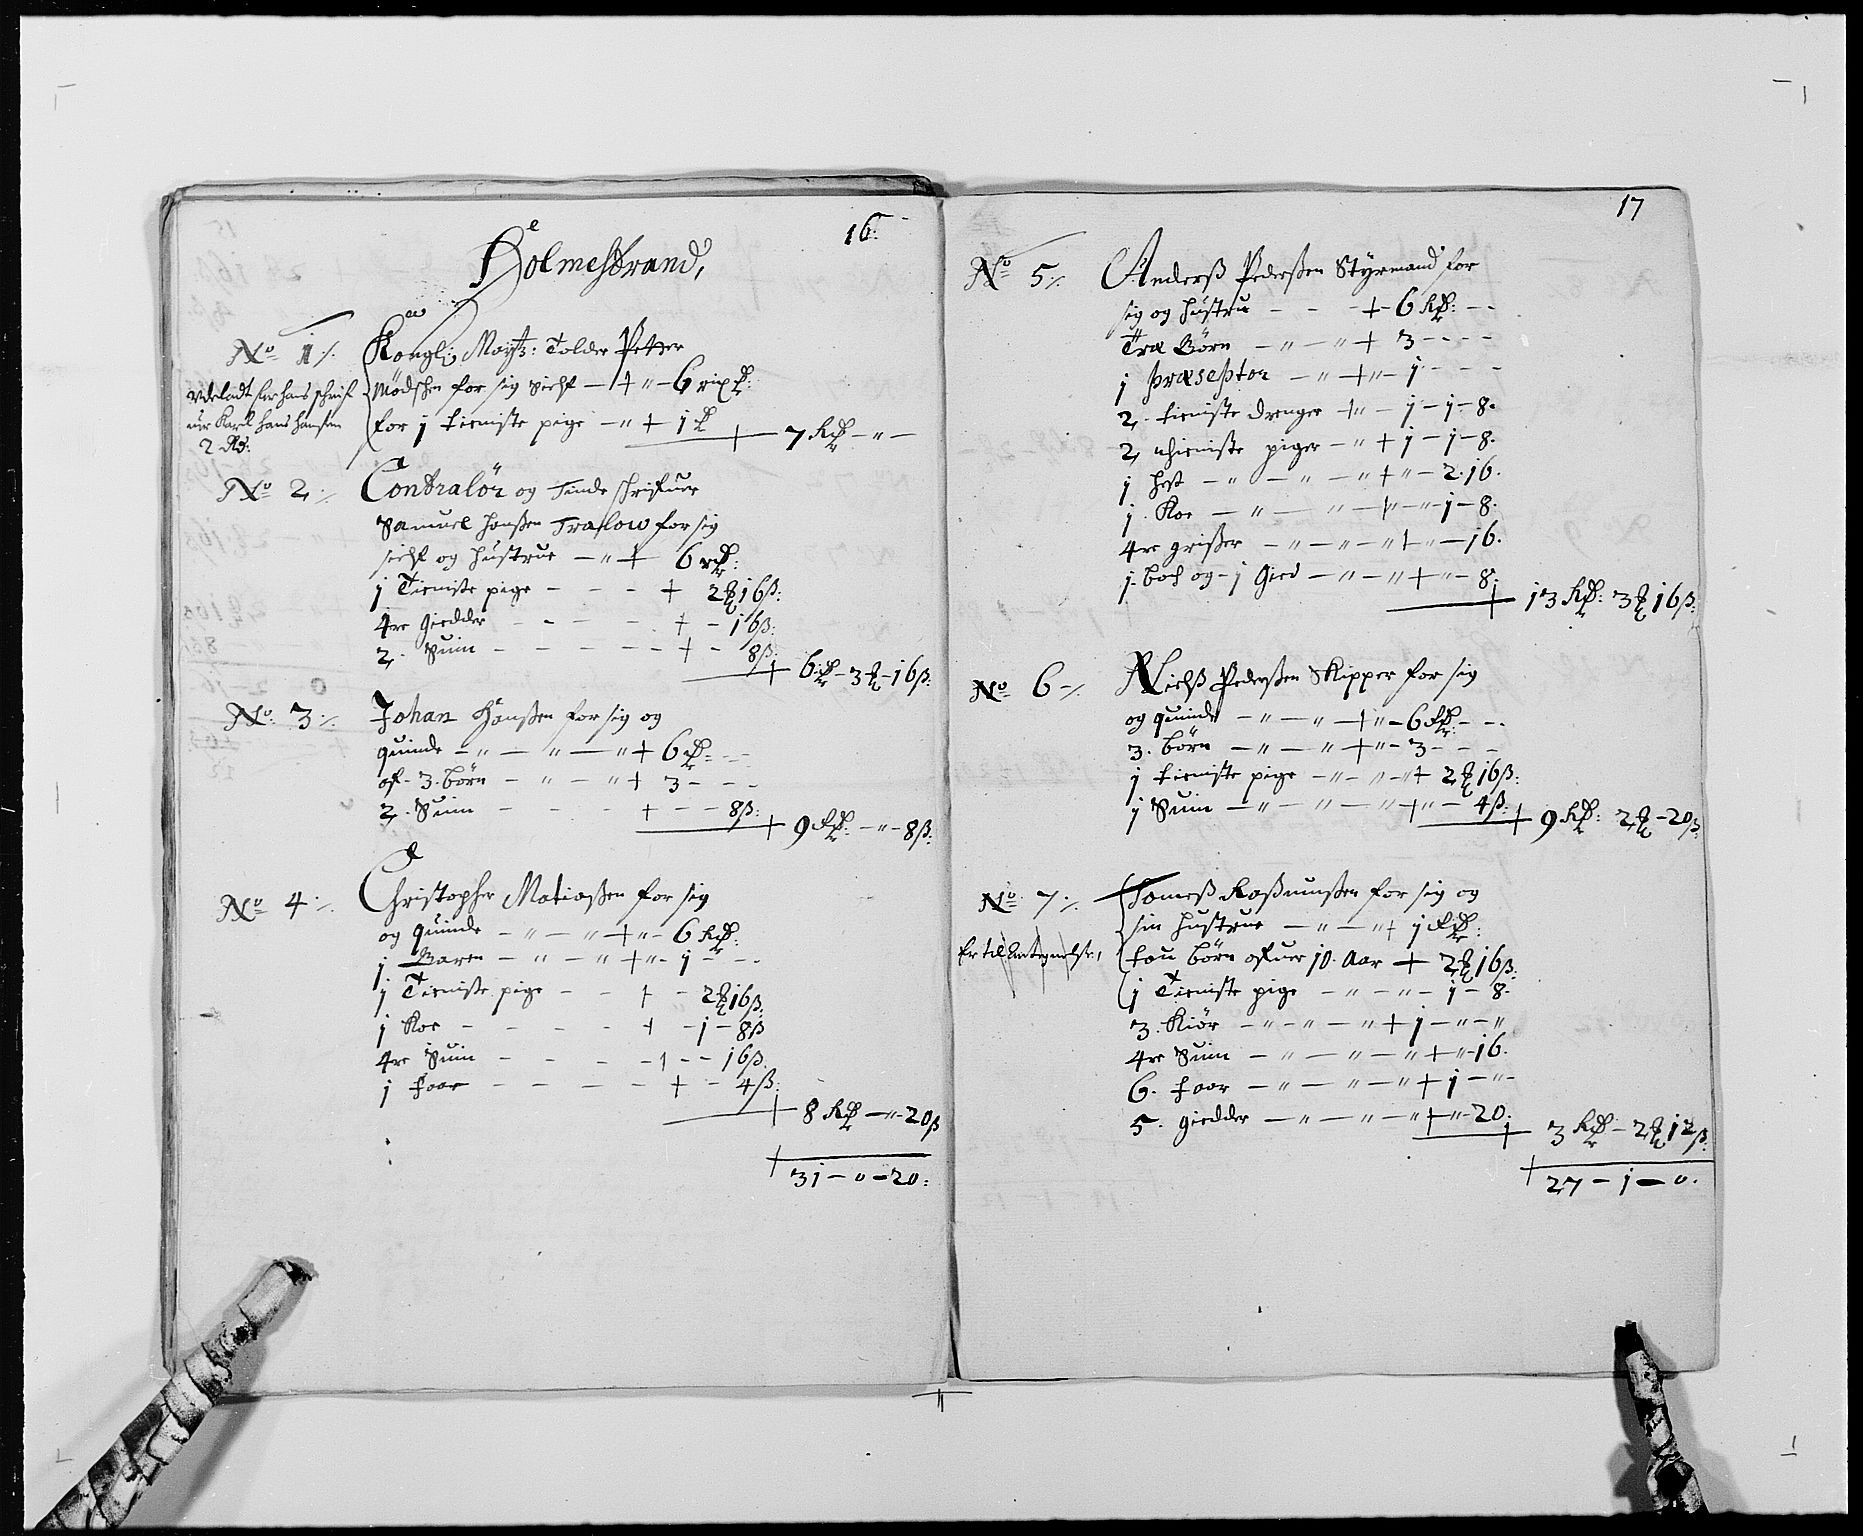 16.
Holmestrand,
No 1 ⁒ Kongl: Maytz: Tolder Petter
Mödschen for sig sielf — + „ — 6 rixd:
for 1 tieniste pige — „ + 1 d
+ 7 Rd — „ —
Karel Hans Hansen
2 Rd:
No 2 ⁒ Contralör og Tinde schrifuer
Samuel Hanßen Tralow for sig
sielf og hustrue — „ + 6 rd:
1 Tieniste pige - - - + 2 ₰ 16 ß:
4re giedder - - - - + - 16 ß:
2. Suin - - - - - + - 8 ß:
+ 6 d - 3 ₰ - 16 ß:
No 3 ⁒ Johan Hanßen for sig og
quinde — „ — „ — „ + 6 d: - -
of 3. börn - „ - „ + 3 - - -
2. Suin - - - + - - 8 ß:
+ 9 Rd: - „ - 8 ß:
No 4 ⁒ Christopher Matiaßen for sig
og quinde - „ - „ - + „ - 6 Rd:
1 Barn - „ - „ + „ - 1 - - -
1 Tieniste pige - - + - 2 ₰ 16 ß:
1 Koe - - - - + - 1 - 8 ß
4re Suin - - - - + - - 16 ß.
1 faar - - - - + - 4 ß:
+ 8 Rd — „ - 20 ß
+ 31 - 0 - 20:
17
No 5 ⁒ Anderß Pederßen Styrmand for
sig og hustru - - - + 6 Rd: - -
Tre Börn - „ - „ + 3 - - - -
1 Præseptor - „ + „ - 1 - - -
2. tieniste drenger + „ - 1 - 1 - 8.
2 thieniste piger - „ + 1 - 1 - 8.
1 hest - „ - „ - „ + „ - 2. 16.
1. Koe - „ - „ - + „ - 1 - 8.
4re grißer - „ - „ - „ + „ - 16.
1. bock og - 1 gied - „ - „ + „ - 8.
+ 13 Rd: 3 ₰ 16 ß:
No 6 ⁒ Nielß Pederßen Skipper for sig
og quinde - „ - „ - + „ - 6 Rd: - -
3. börn - „ - „ + „ - 3 - - -
1 tieniste pige - „ - „ - „ + 2 ₰ 16 ß:
1 Suin - „ - „ - „ + „ - 4 ß:
+ 9 Rd: 2 ₰ - 20 ß:
No 7 ⁒ Tomeß Raßmußen for sig og
sin hustrue - „ - „ + 1 Rd:
Er til Antegnelse, tou börn ofuer 10. Aar + 2 ₰ 16 ß:
1 Tieniste pige - „ - „ - 1 - 8.
3. Kiör - „ - „ - „ + 1 - „ - „
4re Suin - „ - „ - „ + „ - 16.
6. faar - „ - „ - „ + 1 - „ -
5. giedder - „ - „ - „ + „ - 20.
+ 3 Rd - 2 ₰ 12 ß:
+ 27 - 1 - 0.